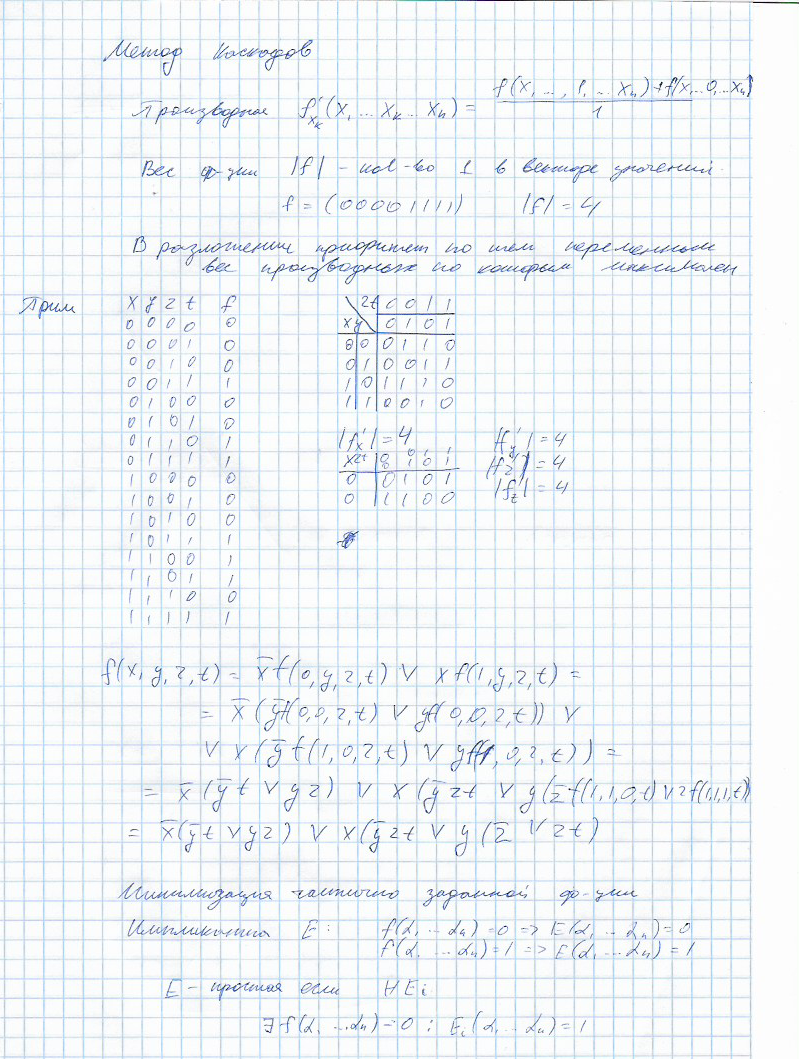 Метод Каскадов
Производная f'xₖ(x, ... xₖ ... xₙ) = f(x, ..., 1, ... xₙ) + f(x, ...0, ...xₙ) / 1
Вес ф-ции |f| - кол-во 1 в векторе значений.
f = (00001111) |f| = 4
В разложении приоритет по тем переменным
вес производных по которым максимален
Прим
x y z t f
0 0 0 0 0
0 0 0 1 0
0 0 1 0 0
0 0 1 1 1
0 1 0 0 0
0 1 0 1 0
0 1 1 0 1
0 1 1 1 1
1 0 0 0 0
1 0 0 1 0
1 0 1 0 0
1 0 1 1 1
1 1 0 0 1
1 1 0 1 1
1 1 1 0 0
1 1 1 1 1
zt 0 0 1 1
xy 0 1 0 1
0 0 0 1 1 0
0 1 0 0 1 1
1 0 1 1 1 0
1 1 0 0 1 0
|f'x| = 4 |f'y| = 4
|f'z| = 4
|f'z| = 4
0 0 1 0 1
0 1 1 0 0
f(x, y, z, t) = x̄ f(0, y, z, t) ∨ x f(1, y, z, t) =
= x̄ (ȳf(0,0,z,t) ∨ yf(0,0,z,t)) ∨
∨ x (ȳ f(1,0,z,t) ∨ yf(1,0,z,t)) =
= x̄ (ȳ t ∨ y z) ∨ x (ȳ z t ∨ y (z̄ f(1,1,0,t) ∨ z f(1,1,1,t))
= x̄(ȳt ∨ yz) ∨ x(ȳzt ∨ y (z̄ ∨ zt)
Минимизация частично заданной ф-ции
Импликанта E: f(α, ... αₙ) = 0 => E(α, ... αₙ) = 0
f(α, ... αₙ) = 1 => E(α, ... αₙ) = 1
E - простая если ∀Eᵢ
∃ f(α, ... αₙ) = 0 : Eᵢ(α, ... αₙ) = 1